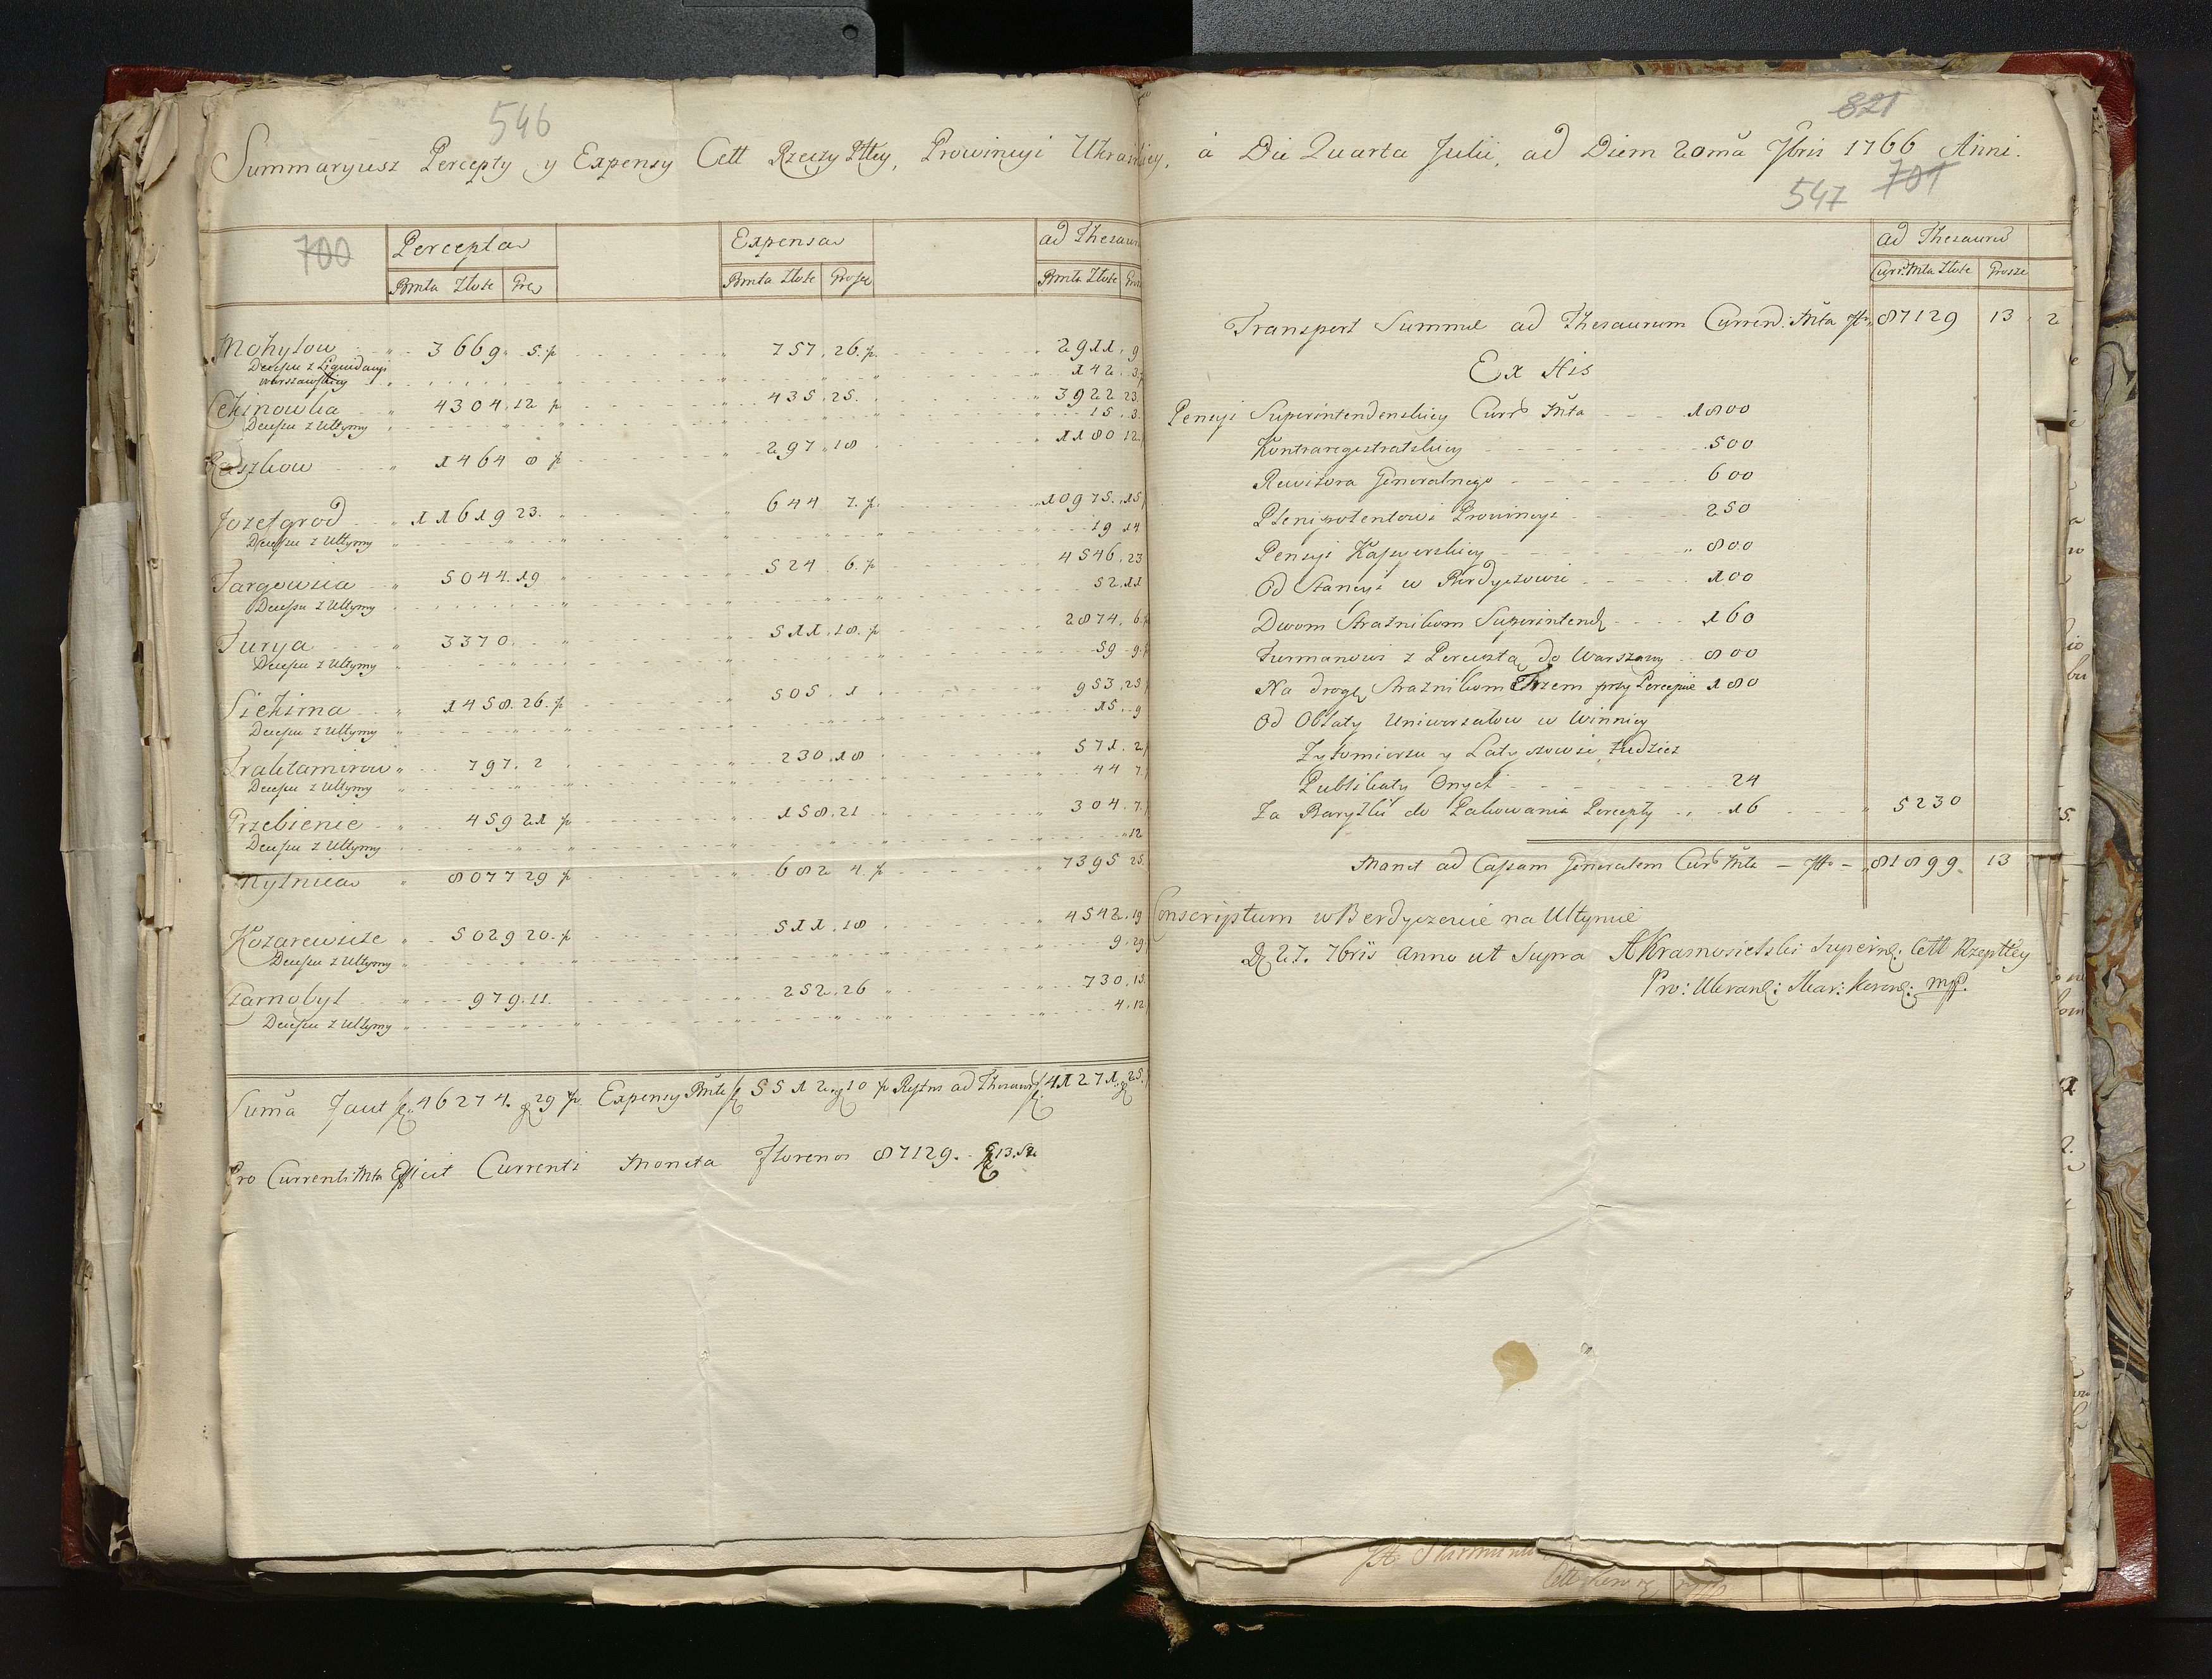 546
Summaryusz Percepty y Expensy Cell Rzeczy Pttey, Prowincyi Ukrainskiey, a Die Quarta Julii, ad Diem 20mā 7bris 1766 Anni.
821
547 701
700
Percepta Expensa ad Thesaur
Bmta Złote Gro Bmta Złote Grosze Bmta Złote Gro
Mohylow 3669 5.p 757.26.p. 2911.9
Decessu z Liquidacyi
warszawskiey 142.3
Cekinowka 4304.12 p 435.25. 3922 23.
Decessu z Ultymy 15.3
Raszkow 1464 8 p 297.18 1180 12
Jozefgrod 11619 23. 644 7.p. 10975.15
Decessu z Ultymy 19 14
Targowica 5044.19 524 6.p 4546.23
Decessu z Ultymy 52.11
Turya 3370. 511.18.p 2874.6
Decessu z Ultymy 59 9
Siekirna 1458.26.p 505.1 953.25
Decessu z Ultymy 15.9
Traktamirow 797.2 230.18 571.2
Decessu z Ultymy 44 7
Przebienie 459 21 p 158.21 304.7
Decessu z Ultymy 12
Mytnica 8077 29 p 682 4.p 7395 25
Kozarewicze 5029 20.p 511.18 4542.19
Decessu z Ultymy 9.29
Czarnobyl 979.11. 252.26 730.15
Decessu z Ultymy 4.12
Sumā Facit 46274. g 29 p. Expensy Bmta 5512 g 10 p Restat ad Thesaur 41271. g 25.
Pro Currenti Mta Efficit Currenti Moneta Florenos 87129. g 13.
ad Thesaurū
Curr. Mta Złote Grosze
Transport Summe ad Thesaurum Curren. Mta 87129 13 2
Ex His
Pensyi Superintendenskiey Curr Mta 1800
Kontraregestratskiey 500
Rewizora Generalnego 600
Plenipotentowi Prowincyi 250
Pensyi Kassyerskiey 800
Od Stancyi w Berdyczowie 100
Dwom Straznikom Superintend 160
Furmanowi z Perceptą do Warszawy 800
Na drogę Straznikom Trzem przy Percepcie 180
Od Oblaty Uniwersałow w Winnicy
Zytomierzu y Latyczowie, tudziesz
Publikaty Onych 24
Za Baryłki do Pakowania Percepty 16 5230
Manet ad Cassam Generalem Cur Mta 81899. 13
Conscriptum w Berdyczewie na Ultymie
D 27. 7bris Anno ut Supra A Krasnosielski Superin: Cell Rzeptley
Pro: Ukran: mp.